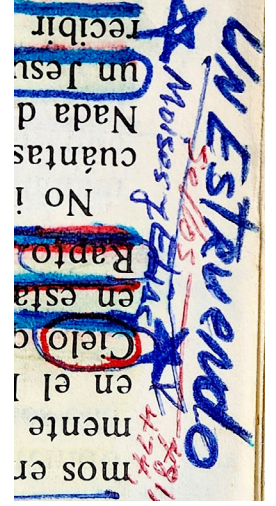 mos en
mente
en el
Cielo
en esta
Rapto
No
cuántas
Nada d
un Jesu
recibir
UN ESTRUENDO
Sellos
Moises y Elias